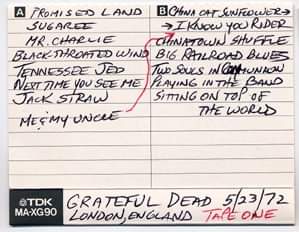 A PROMISED LAND
SUGAREE
MR. CHARLIE
BLACK-THROATED WIND
TENNESSEE JED
NEXT TIME YOU SEE ME
JACK STRAW
ME & MY UNCLE
B CHINA CAT SUNFLOWER →
→ I KNOW YOU RIDER
CHINATOWN SHUFFLE
BIG RAILROAD BLUES
TWO SOULS IN COMMUNION
PLAYING IN THE BAND
SITTING ON TOP OF
THE WORLD
TDK
MA-XG90
GRATEFUL DEAD 5/23/72
LONDON, ENGLAND TAPE ONE